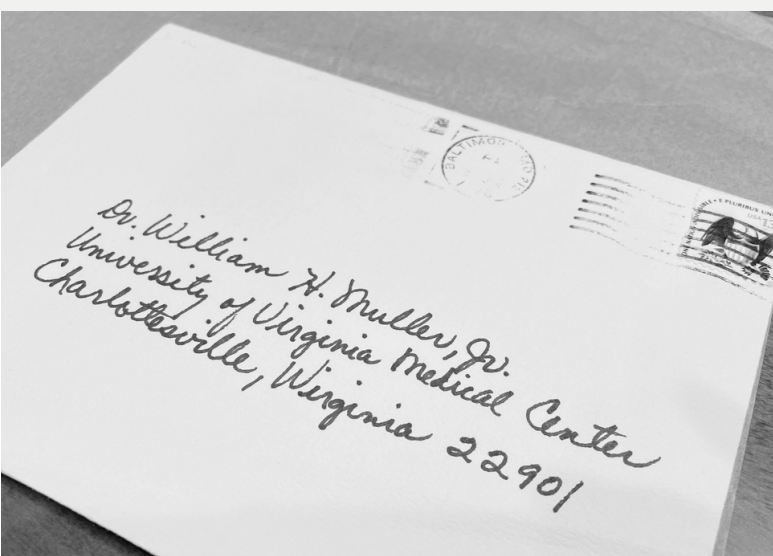 BALTIMORE
E PLURIBUS UN
USA
Dr. William H. Muller, Jr.
University of Virginia Medical Center
Charlottesville, Virginia 22901